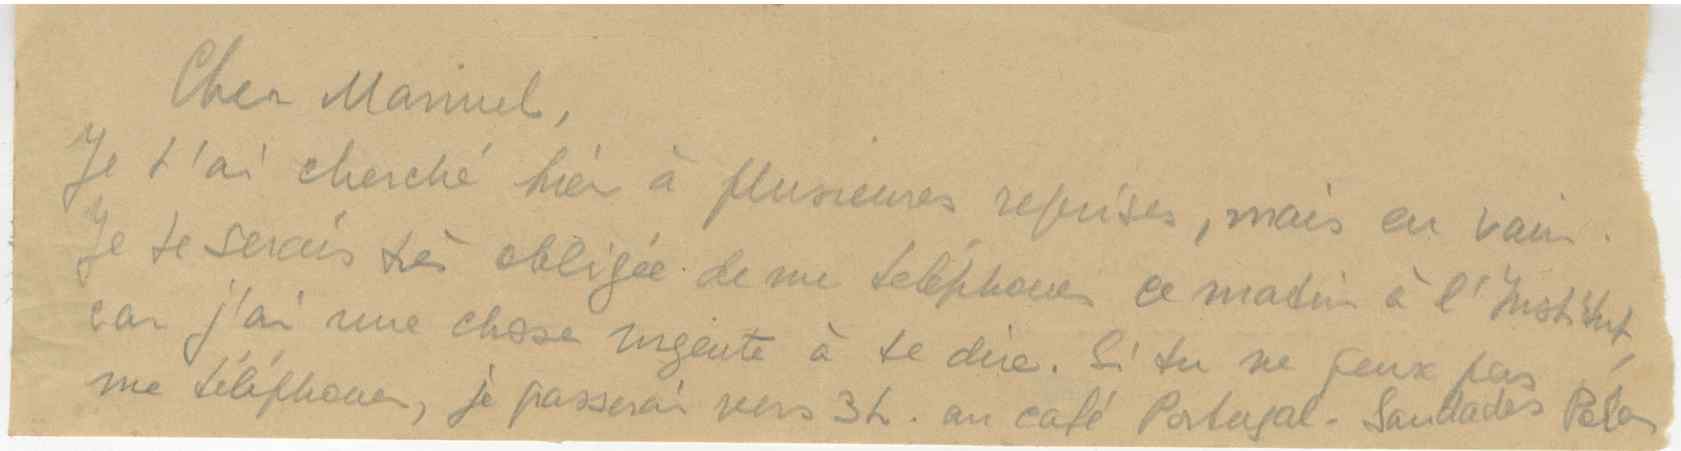 Cher Manuel,
Je t'ai cherché hier à plusieures reprises, mais en vain.
Je te serais très obligée de me téléphoner ce matin à l'Institut,
car j'ai une chose urgente à te dire. Si tu ne peux pas
me téléphoner, je passerai vers 3h. au café Portugal - Saudades